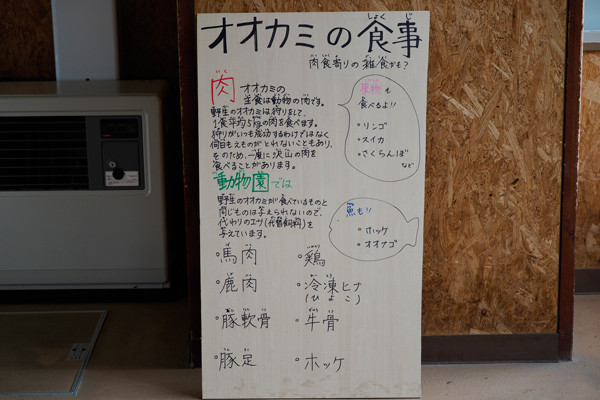 オオカミの食事
肉食寄りの雑食かも?
肉 オオカミの
主食は動物の肉です。
野生のオオカミは狩りをして、
1食平均5kgの肉を食べます。
狩りがいつも成功するわけではなく
何日もえものがとれないこともあり、
そのため、一度に沢山の肉を
食べることがあります。
果物も
食べるよ!!
・リンゴ
・スイカ
・さくらんぼ
など
動物園では
野生のオオカミが食べているものと
同じものは与えられないので、
代わりのエサ(代替飼料)を
与えています。
魚も!!
・ホッケ
・オオナゴ
・馬肉
・鶏
・鹿肉
・冷凍ヒナ
(ひよこ)
・豚軟骨
・牛骨
・豚足
・ホッケ